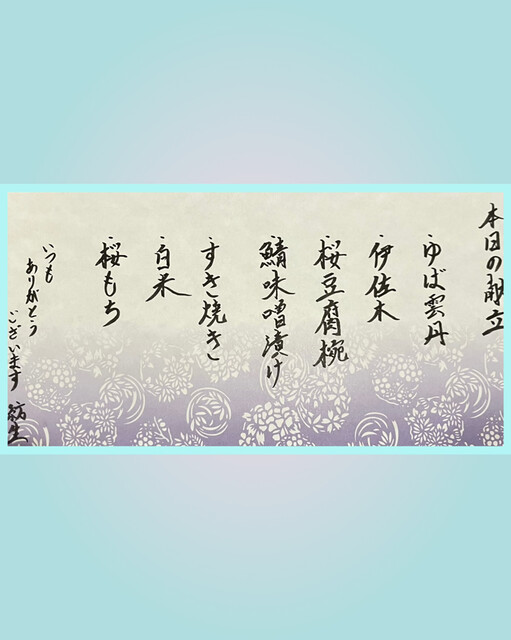 本日の献立
ゆば雲丹
伊佐木
桜豆腐椀
鯖味噌漬け
すき焼き
白米
桜もち
いつも
ありがとう
ございます